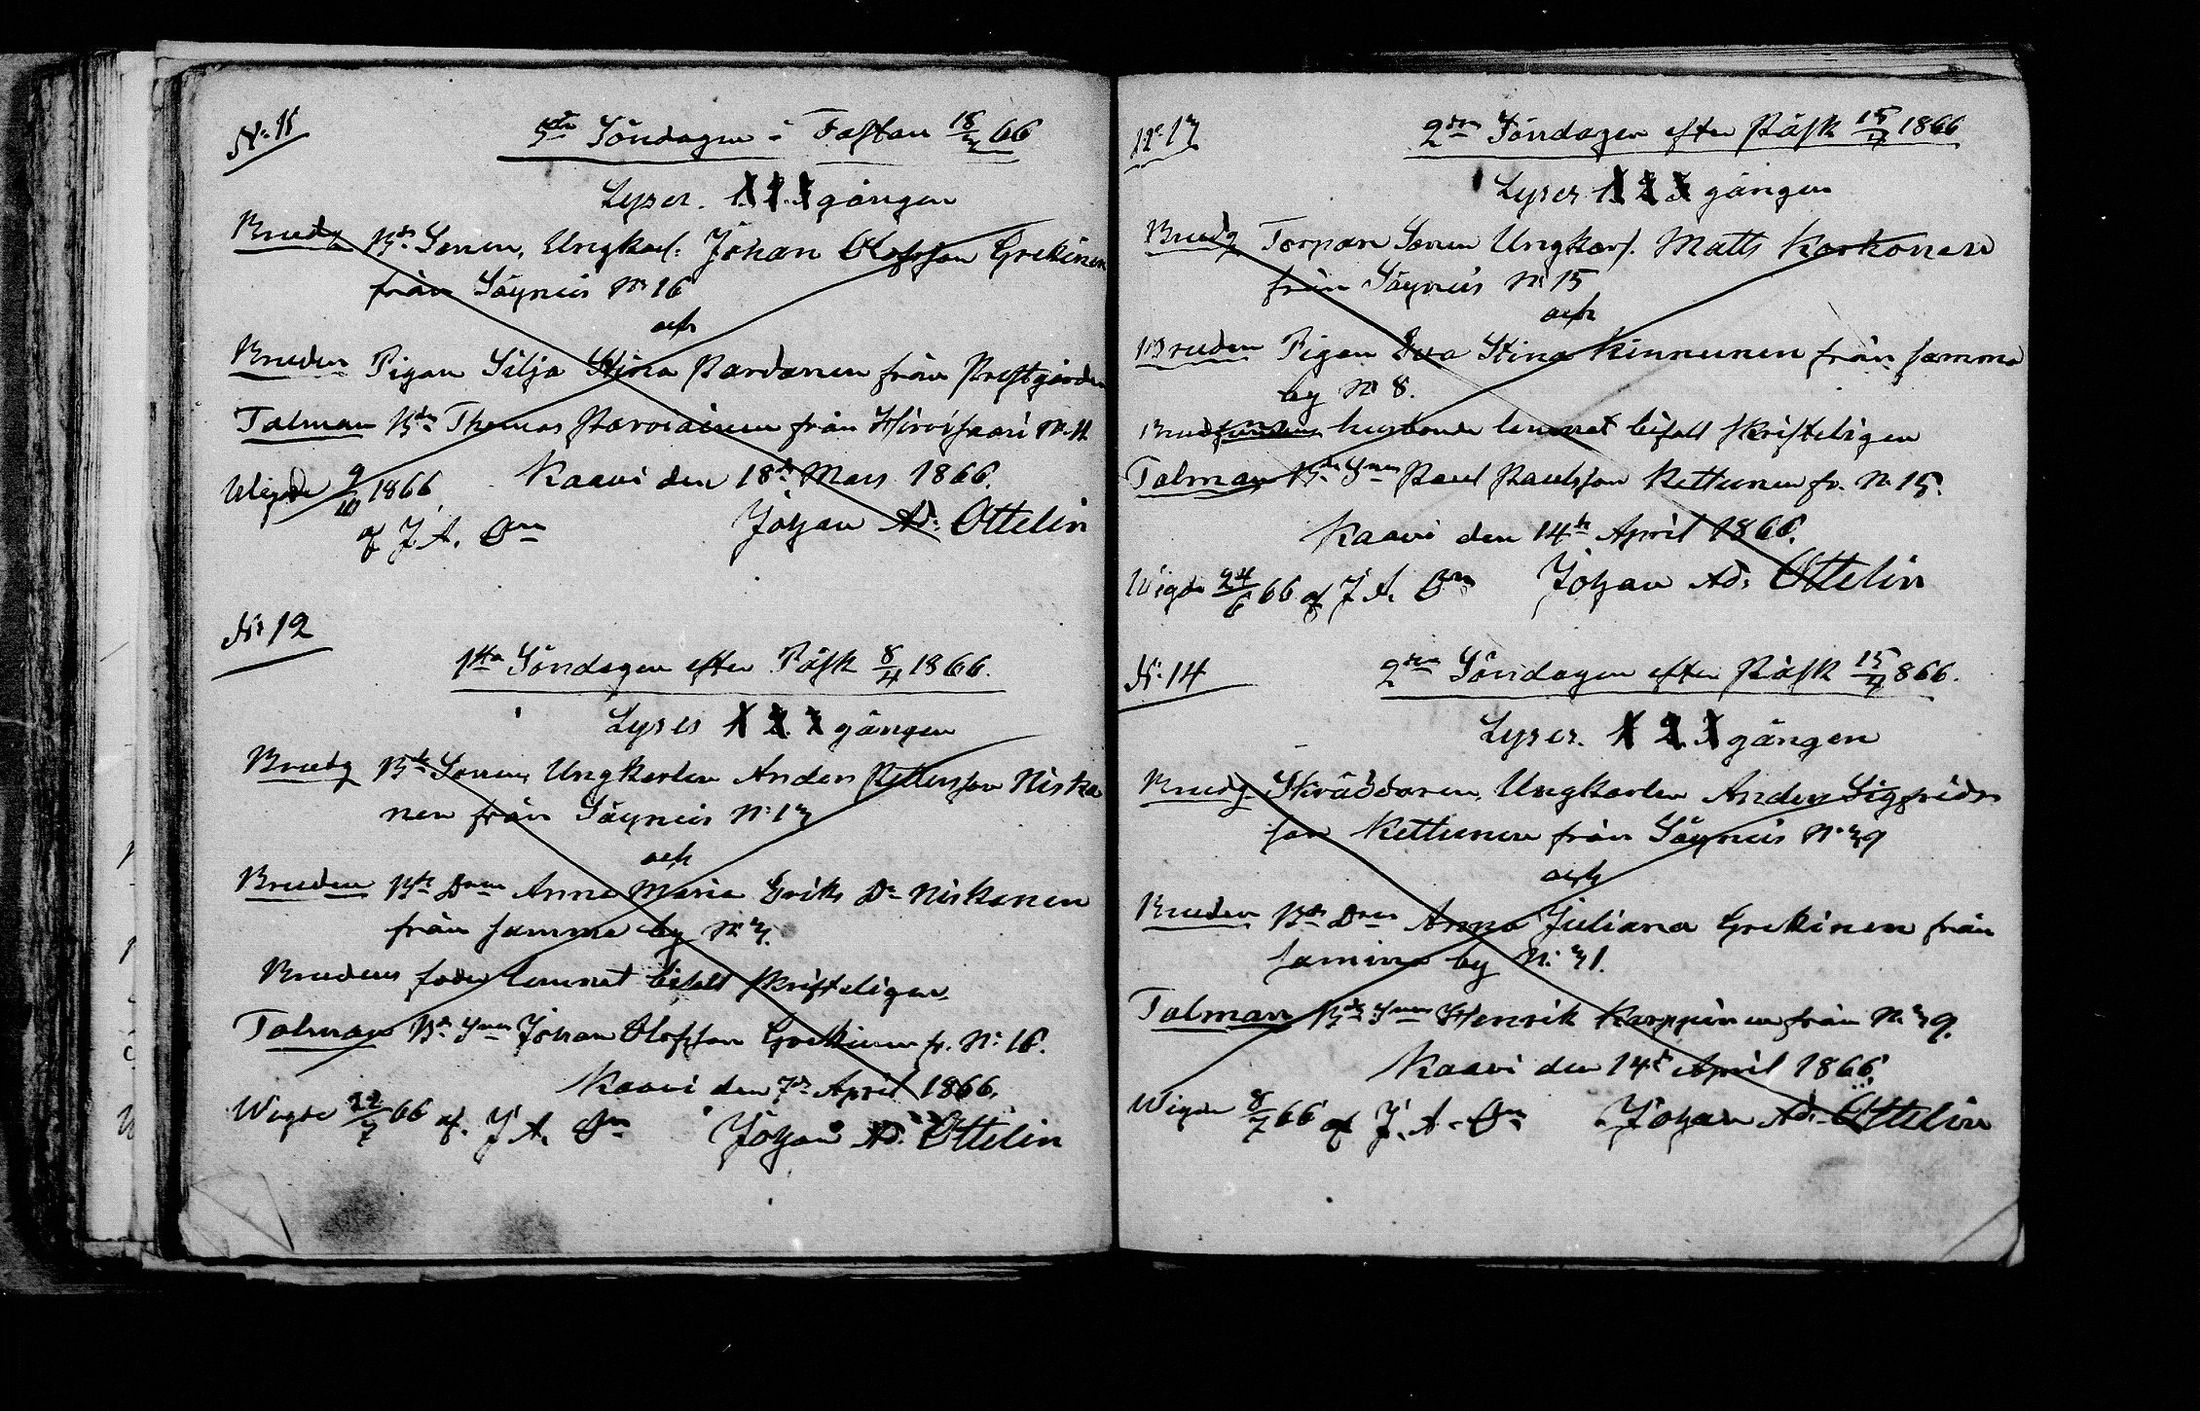 No 11
5te Söndagen i Fastan 18/3 66
Lyses 1. 2. 3 gången
Brudg Bde Sonen, Ungkarl: Johan Olofsson Goekinen
från Säyneis No 16
och
Bruden Pigan Silja Stina Pardanen från Prestgården
Talman Bde Thomas Parviainen från Hirvisaari No 11
Kaavi den 18de Mars 1866.
Wigde 9/10 1866
af J. A. On
Johan Ad: Ottelin
No 12
1sta Söndagen efter Påsk 8/4 1866.
Lyses 1 2. 3 gången
Brudg Bde Sonen, Ungkarlen Anders Pettersson Niska
nen från Säyneis No 13
och
Bruden Bde Dren Anna Maria Eriks Dr Niskanen
från samma by No 3.
Brudens fader lemnat bifall skrifteligen.
Talman Bde Snen Johan Olofsson Goekinen fr. No 16.
Kaavi den 7de April 1866.
Wigde 22/7 66 af. J A. On
Johan Ad. Ottelin
No 13
2dra Söndagen efter Påsk 15/4 1866
Lyses 1 2 3 gången
Brudg Torpare Sonen Ungkarl. Matts Karkonen
från Säyneis No 15
och
Bruden Pigan Eva Stina Kinnunen från samma
by No 8.
husbonde lemnat bifall skrifteligen
Talman Bde Snen Paul Paulsson Kettunen fr. No 15.
Kaavi den 14de April 1866.
Wigde 24/6 66 af J. A. On
Johan Ad: Ottelin
No 14
2dra Söndagen efter Påsk 15/4 866.
Lyses. 1 2. 3 gången
Brudg Skräddaren, Ungkarlen Anders Sigfrids
son Kettunen från Säyneis No 39
och
Bruden Bde Dren Anna Juliana Goekinen från
samma by No 31.
Talman Bde Snen Henrik Karppinen från No 39.
Kaavi den 14de April 1866
Wigde 8/7 66 af J. A. On
Johan Ad. Ottelin